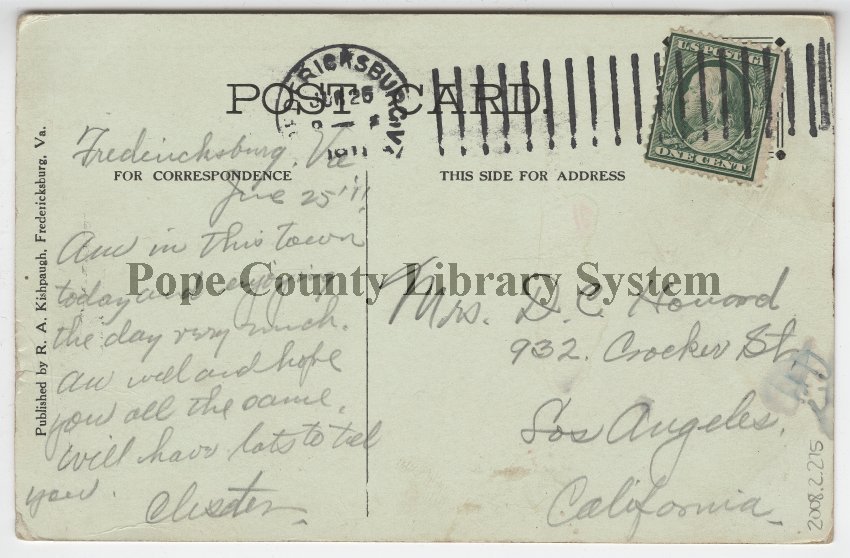 POST CARD.
FREDERICKSBURG, VA
JUN 26
1911
U.S. POSTAGE
ONE CENT
FOR CORRESPONDENCE
THIS SIDE FOR ADDRESS
Published by R. A. Kishpaugh, Fredericksburg, Va.
Fredericksburg, Va
June 25 '11
Am in this town
today and enjoying
the day very much.
Am well and hope
you all the same.
Will have lots to tell
you.
Chester
Mrs. D. C. Howard
932. Crocker St.
Los Angeles.
California.
Pope County Library System
2008.2.275